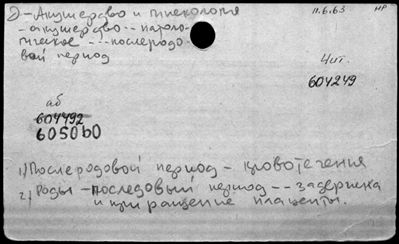 Э-Акушерство и гинекология
11.6.63
НР
-акушерство--патоло-
гическое---послеродо-
вой период
Чит.
604249
аб
604492
6050Ь0
1) Послеродовой период - кровотечения
2) Роды - последовый период -- задержка
и приращение плаценты.